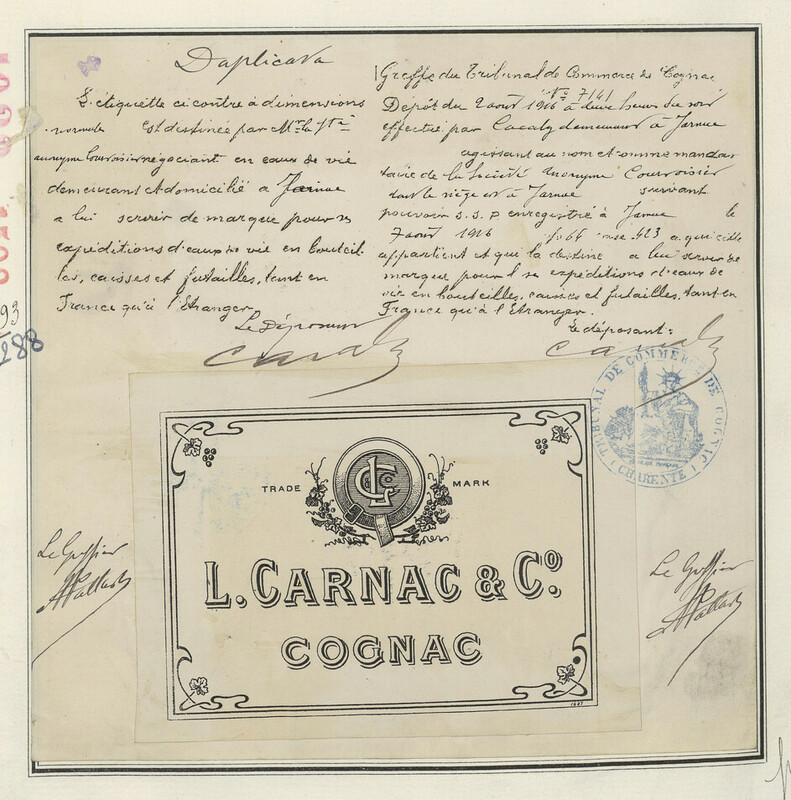 Duplicata
L'étiquette ci contre à dimensions
normales est destinée par Mr la Sté
anonyme Courvoisier négociant en eaux de vie
demeurant et domicilié a Jarnac
a lui servir de marque pour ses
expéditions d'eaux de vie en bouteil-
les, caisses et futailles, tant en
France qu'à l'Etranger
Le Déposant
Greffe du Tribunal de Commerce de Cognac
No 7141
Dépôt du 2 aout 1916 à deux heures du soir
effectué par demeurant à Jarnac
agissant au nom et comme manda-
taire de la Société Anonyme Courvoisier
dont le siège est à Jarnac suivant
pouvoir s.s.p enregistré à Jarnac le
7 aout 1916 fo 66 case 423 a qui elle
appartient et qui la destine a lui servir de
marque pour ses expéditions d'eaux de
vie en bouteilles, caisses et futailles, tant en
France qu'à l'Etranger.
Le déposant:
TRIBUNAL DE COMMERCE DE COGNAC
(CHARENTE)
93
288
TRADE MARK
L. CARNAC & Co.
COGNAC
1627
Le Greffier
Le Greffier